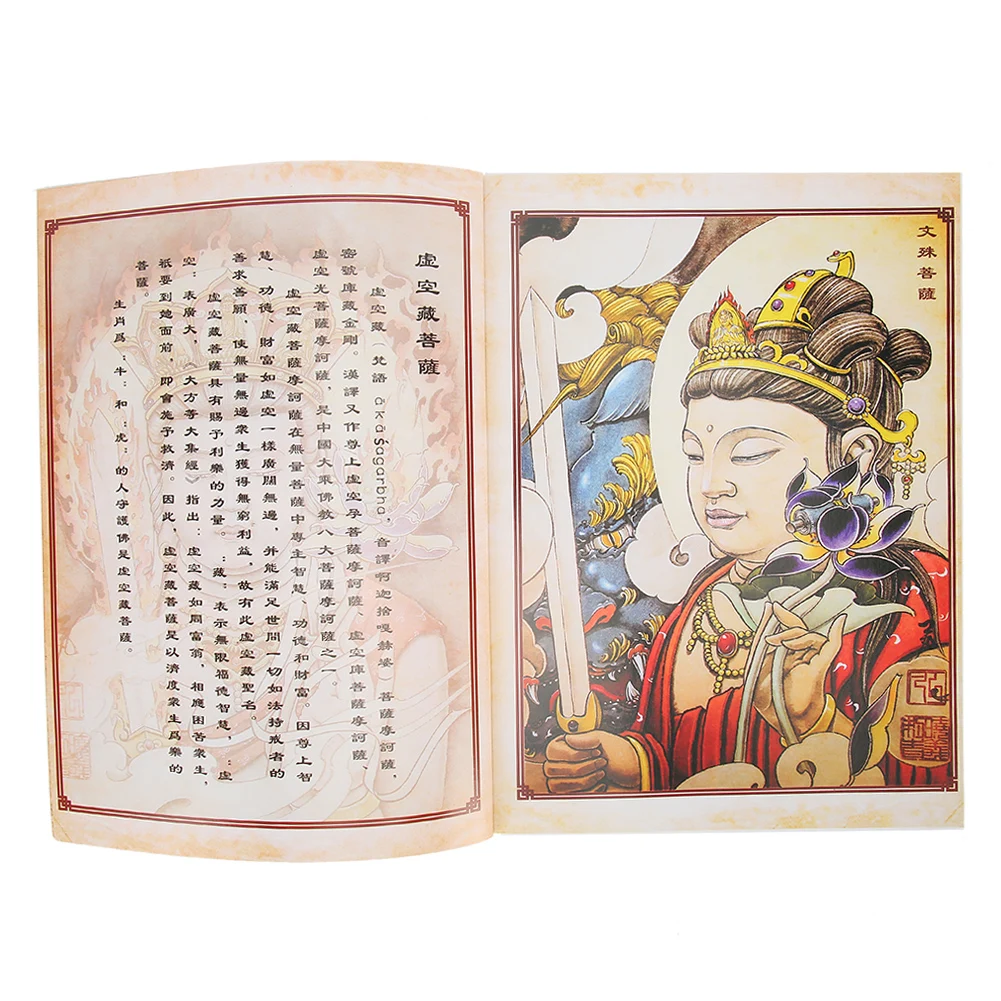 虛空藏菩薩
虛空藏（梵語：ākāśagarbha，音譯啊迦捨嘎赫婆，菩薩摩訶薩，
密號庫藏金剛。漢譯又作尊上虛空孕菩薩摩訶薩、虛空庫菩薩摩訶薩、
虛空光菩薩摩訶薩，是中國大乘佛教八大菩薩摩訶薩之一。
虛空藏菩薩摩訶薩在無量菩薩中專主智慧、功德和財富。因尊上智
慧、功德、財富如虛空一樣廣闊無邊，并能滿足世間一切如法持戒者的
善求善願，使無量無邊衆生獲得無窮利益，故有此虛空藏聖名。
虛空藏菩薩具有賜予利樂的力量。“藏”表示無限福德智慧，“虛
空”表廣大。《大方等大集經》指出：虛空藏如同富翁，相應困苦衆生，
祇要到她面前，即會施予救濟。因此，虛空藏菩薩是以濟度衆生爲樂的
菩薩。
生肖爲“牛”和“虎”的人守護佛是虛空藏菩薩。
文殊菩薩